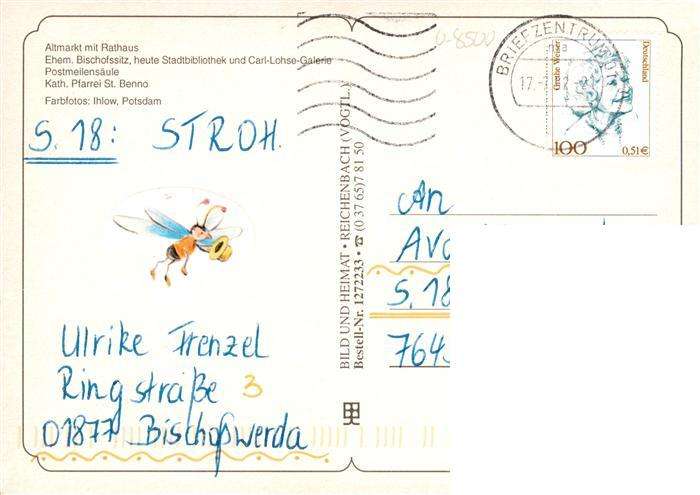 Altmarkt mit Rathaus
Ehem. Bischofssitz, heute Stadtbibliothek und Carl-Lohse-Galerie
Postmeilensäule
Kath. Pfarrei St. Benno
Farbfotos: Ihlow, Potsdam
S. 18: STROH.
Ulrike Frenzel
Ringstraße 3
01877 Bischofswerda
BILD UND HEIMAT · REICHENBACH (VOGTL.)
Bestell-Nr. 1272233 · ☎ (0 37 65) 7 81 50
BRIEFZENTRUM 01
17.
Grethe Weiser
Deutschland
100
0,51 €
An
S. 18